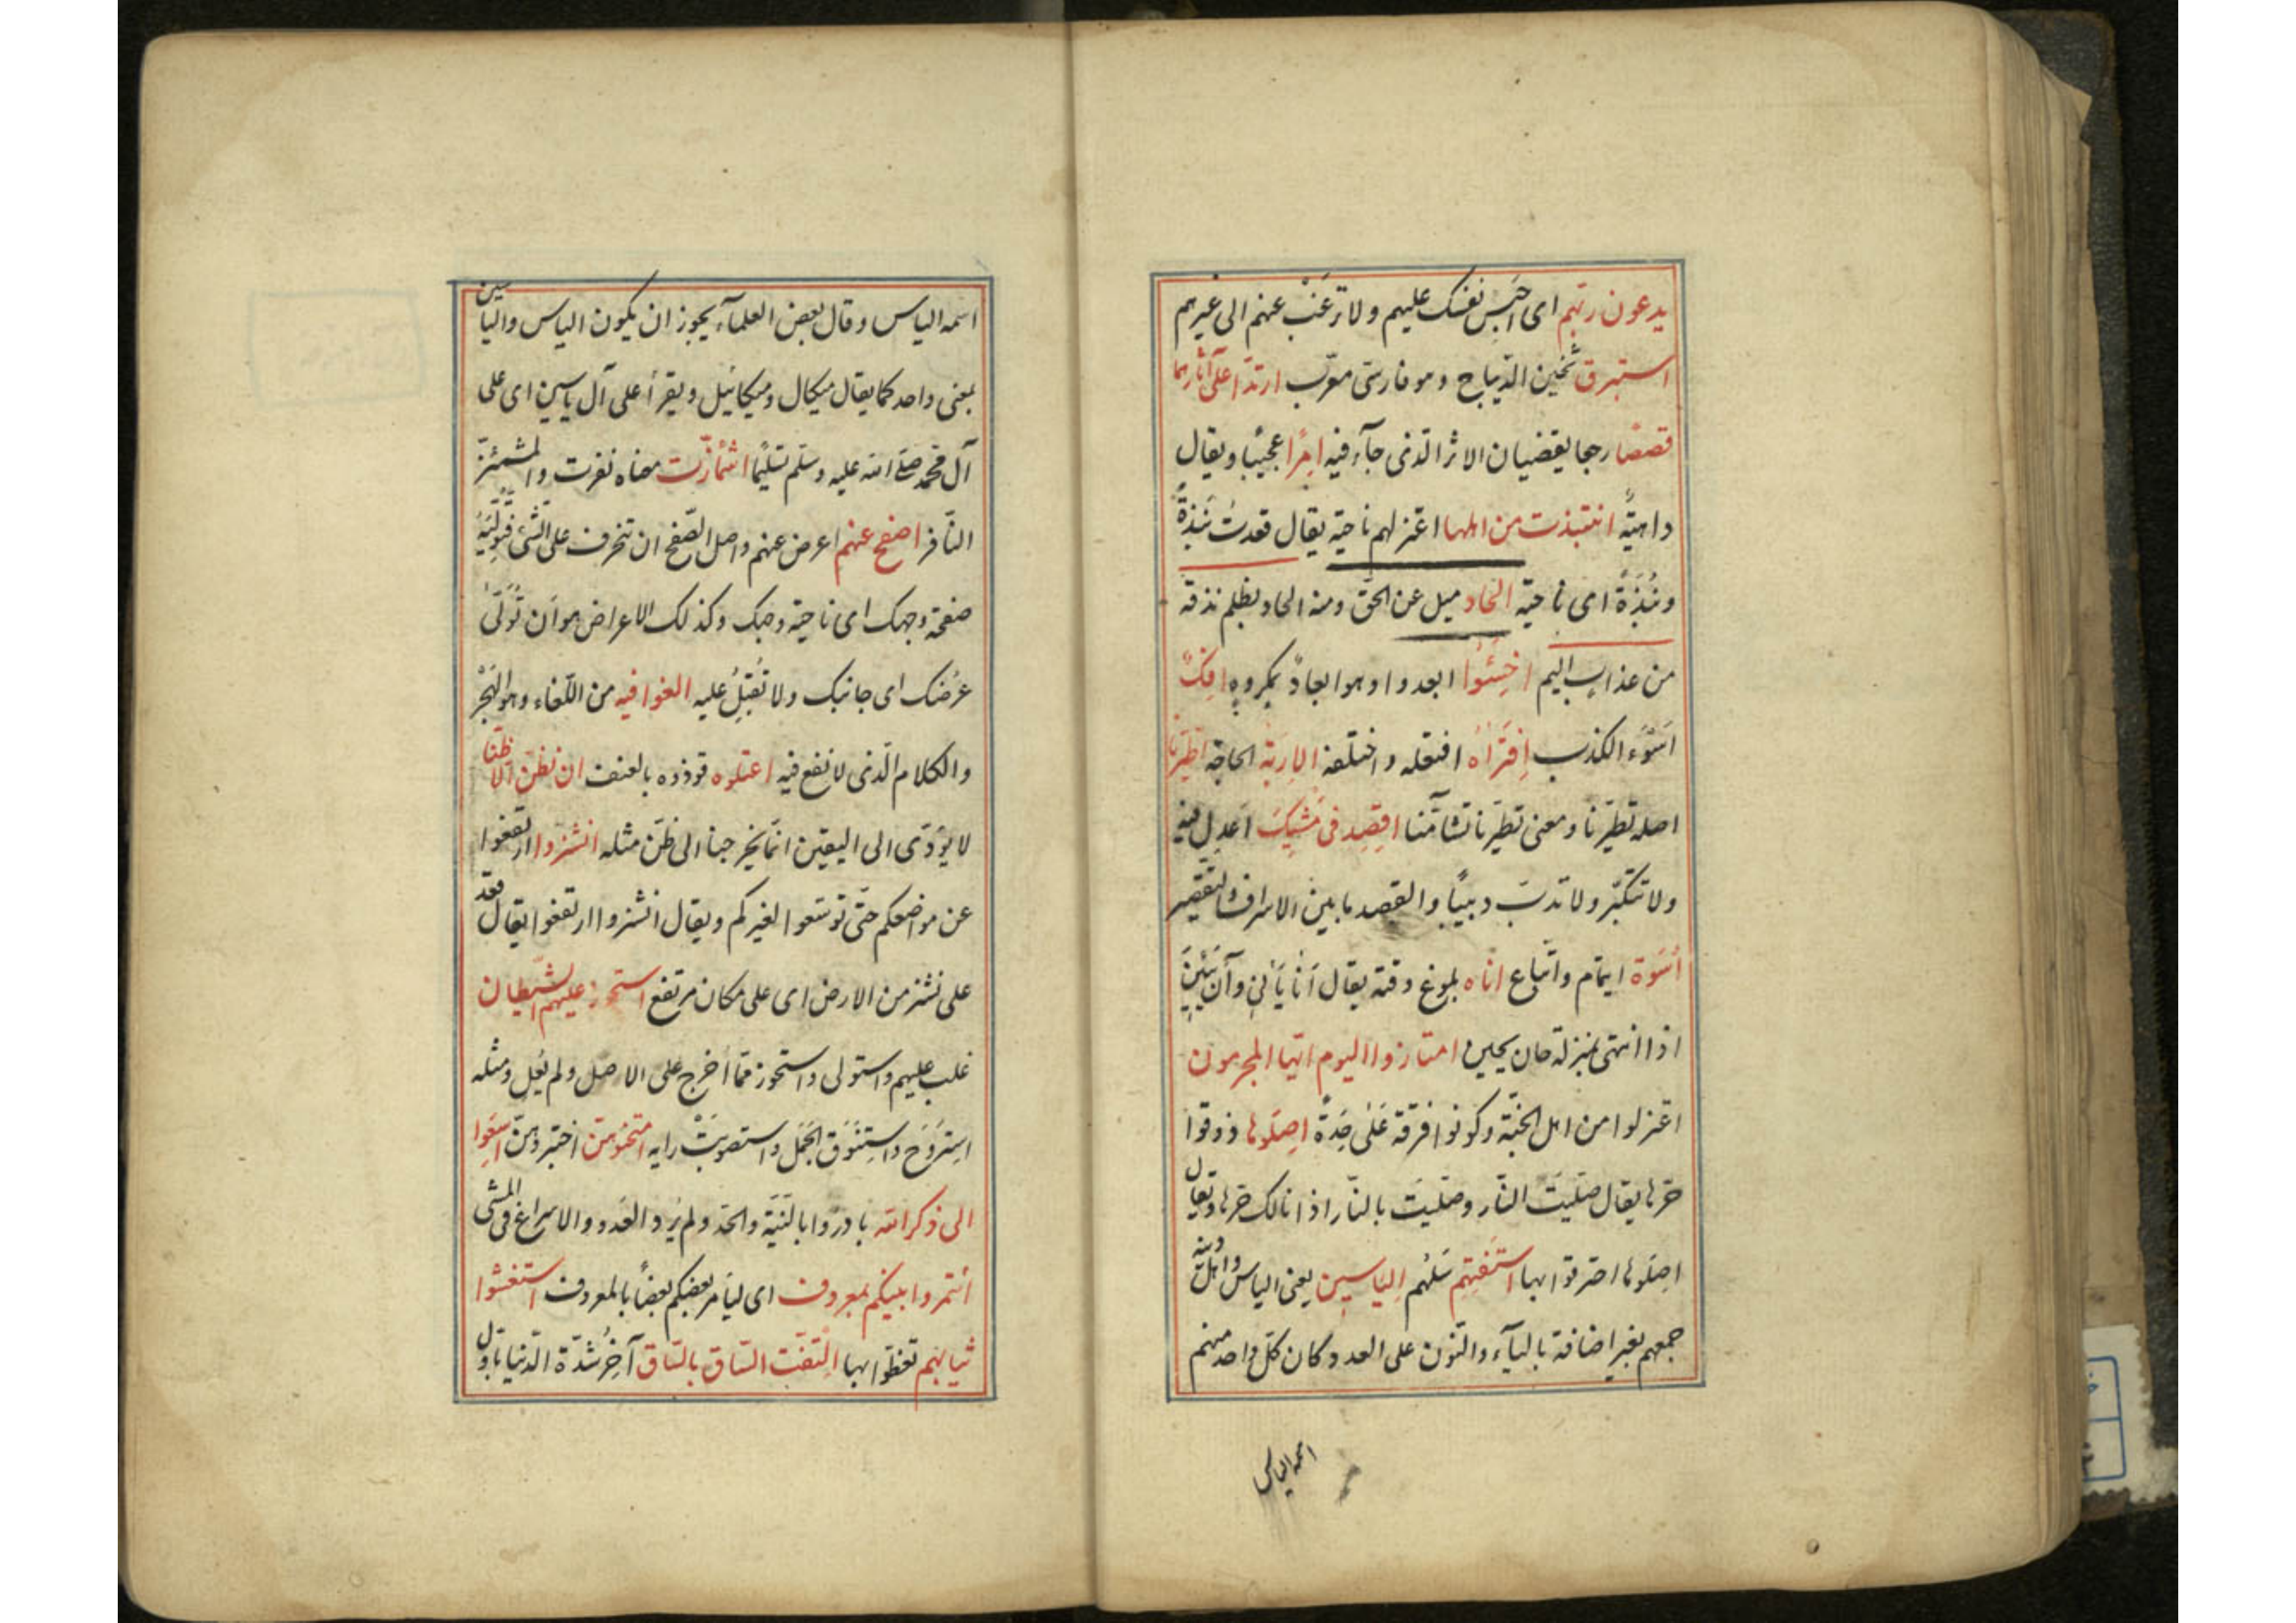 يدعون ربّهم اى احبس نفسك عليهم ولا ترغب عنهم الى غيرهم
استبرق ثخين الدّيباج وهو فارسىّ معرّب ارتدّا على آثارهما
قصصًا رجعا يقصان الاثر الّذى جآء فيه امرًا عجيبًا ويقال
داهيةً انتبذت من اهلها اعتزلهم ناحية يقال قعدت نَبذةً
ونُبذةً اى ناحية الحاد ميل عن الحقّ ومنه الحاد بظلم نذقه
من عذاب اليم اخسئوا ابعدوا وهو ابعادٌ بمكروه افكٌ
اسوء الكذب افتراه افتعله واختلقه الاربة الحاجة اطّيّرنا
اصله تطيّرنا ومعنى تطيّرنا تشآمنا اقصد فى مشيك اعدل فيه
ولا تتكبّر ولا تدبّ دبيبًا والقصد ما بين الاسراف والتقصير
اسوة ايتمام واتّباع اناه بلوغ وقته يقال أنا يأنى وآن يئين
اذا انتهى بمنزلة حان يحين امتازوا اليوم ايّها المجرمون
اعتزلوا من اهل الجنّة وكونوا فرقة على حدة اصلوها ذوقوا
حرّها يقال صليت النّار وصليت بالنّار اذا نالك حرّها ويقال
اصلوها احترقوا بها استفتهم سلهم الياسين يعنى الياس واهل دينه
جمعهم بغير اضافة باليآء والنّون على العدد كان كلّ واحد منهم
اسمه الياس
اسمه الياس وقال بعض العلمآء يجوز ان يكون الياس والياسين
بمعنى واحد كما يقال ميكال وميكائيل ويقرأ على آل ياسين اى على
آل محمّد صلّى الله عليه وسلّم تسليمًا اشمأزّت معناه نفرت والمشمئزّ
النّافر اصفح عنهم اعرض عنهم واصل الصّفح ان تنحرف على الشّئ فتولّيه
صفحة وجهك اى ناحية وجهك وكذلك الاعراض هو ان تولّى
عرضك اى جانبك ولا تقبل عليه الغوا فيه من اللّغاء وهو الهجر
والكلام الّذى لا نفع فيه اعتلوه قودوه بالعنف ان نظنّ الا ظنّا
لا يؤدّى الى اليقين انّما يخرجنا الى ظنّ مثله انشزوا ارتفعوا
عن مواضعكم حتّى توسّعوا لغيركم ويقال انشزوا ارتفعوا يقال قعد
على نشز من الارض اى على مكان مرتفع استحوذ عليهم الشّيطان
غلب عليهم واستولى واستحوذ ممّا اخرج على الاصل ولم يعل ومثله
استروح واستنوق الجمل واستصوبت رايه امتحنوهنّ اختبروهنّ اسعوا
الى ذكر الله بادروا بالنّيّة والجدّ ولم يرد العدو والاسراع فى المشى
ائتمروا بينكم بمعروف اى ليأمر بعضكم بعضًا بالمعروف استغشوا
ثيابهم تغطّوا بها التفّت السّاق بالسّاق آخر شدّة الدّنيا باوّل